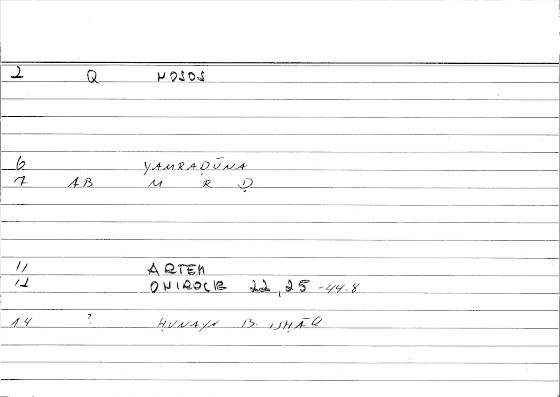 2 Q NOSOS
6 YAMRAḌŪNA
7 AB M R Ḍ
11 ARTEM
12 ONIROCR 22,25-44.8
14 ? ḤUNAYN B. ISḤĀQ